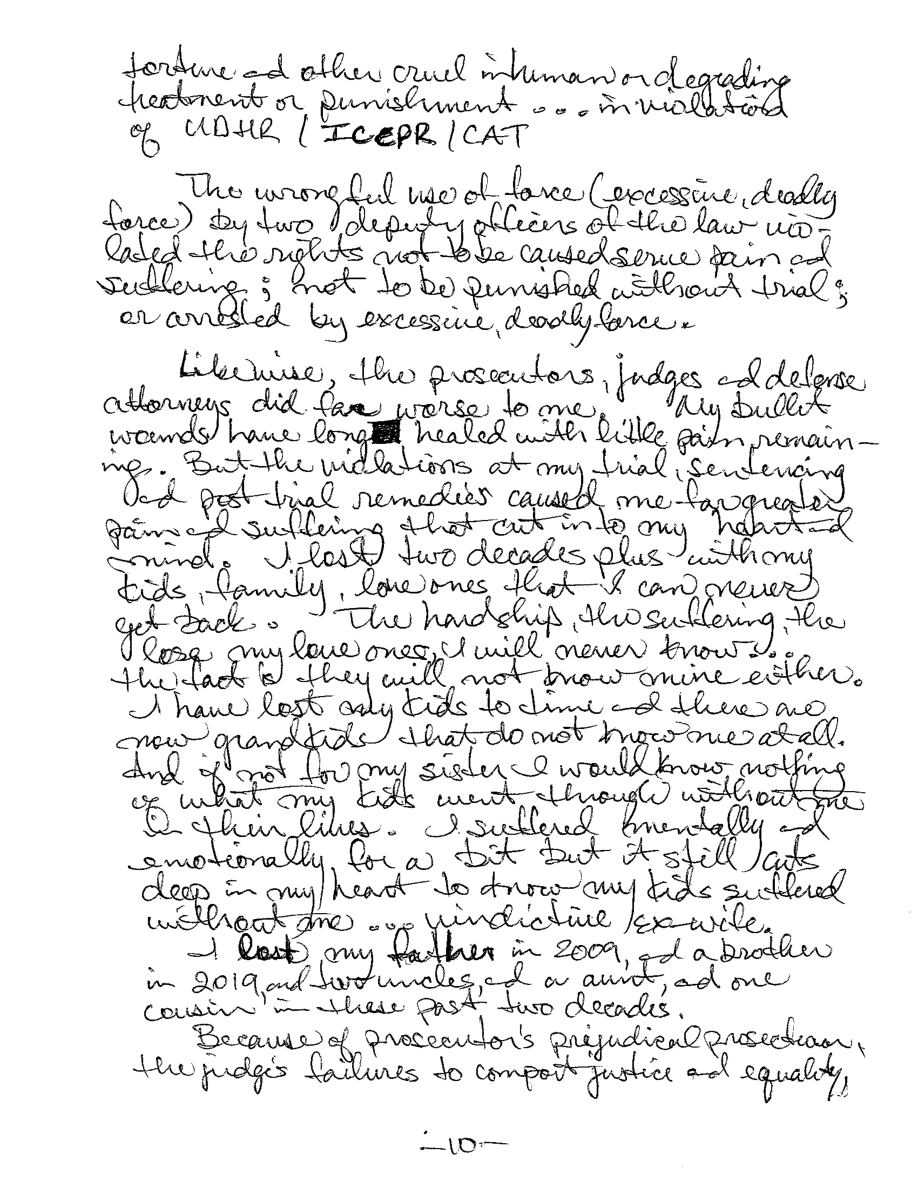 torture ad other cruel inhuman or degrading
treatment or punishment ... in violation
of UDHR / ICEPR / CAT
The wrongful use of force (excessive, deadly
force) by two deputy officers of the law vio-
lated the rights not to be caused serve pain ad
suffering ; not to be punished without trial ;
or arrested by excessive, deadly force.
Likewise, the prosecutors, judges ad defense
attorneys did far worse to me. My bullet
wounds have long healed with little pain remain-
ing. But the violations at my trial, sentencing
ad post trial remedies caused me far greater
pain ad suffering that cut into my heart ad
mind. I lost two decades plus with my
kids, family, love ones that I can never
get back. The hardship, the suffering, the
lose my love ones, I will never know...
the fact is they will not know mine either.
I have lost my kids to time ad there are
now grandkids that do not know me at all.
And if not for my sister I would know nothing
of what my kids went through without me
in their lives. I suffered mentally ad
emotionally for a bit but it still cuts
deep in my heart to know my kids suffered
without me ... vindictive ex-wife.
I lost my father in 2009, ad a brother
in 2019, and two uncles, ad a aunt, ad one
cousin in these past two decades.
Because of prosecutor's prejudical prosection,
the judge's failures to comport justice ad equality,
-10-